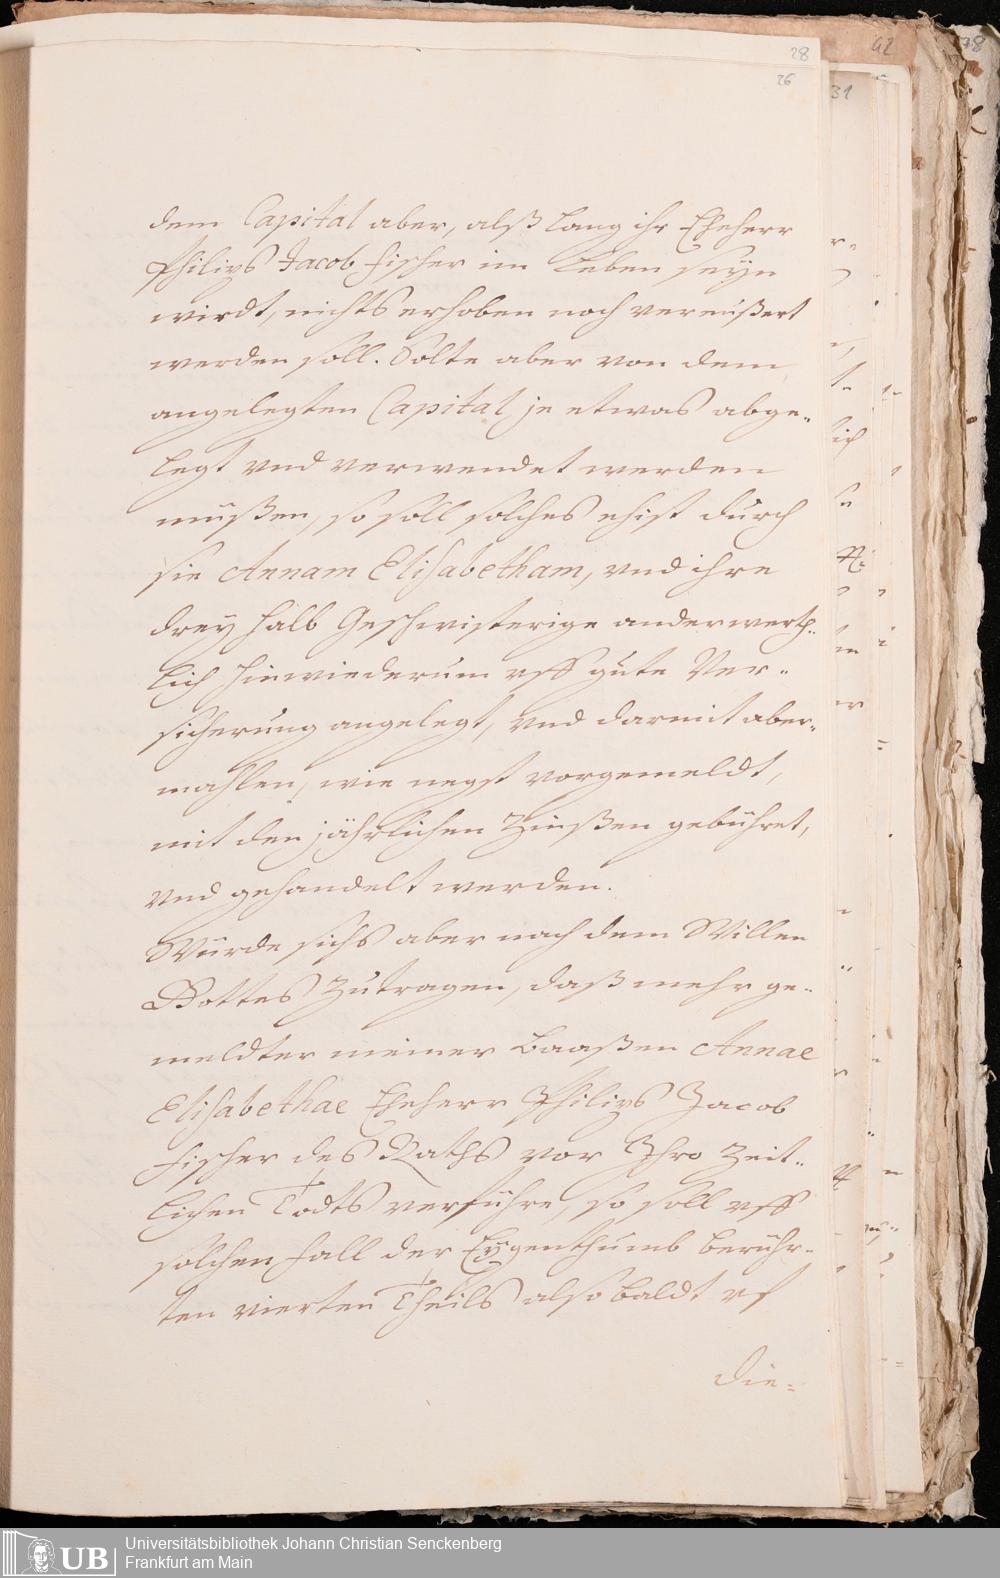 28
26
dem Capital aber, alß lang ihr Eheherr
Philips Jacob Fischer im Leben seyn
wirdt, nichts erhoben noch vereüßert
werden soll. Solte aber von dem
angelegten Capital je etwas abge-
legt vnd verwendet werden
müßen, so soll solches ehist durch
sie Annam Elisabetham, vnd ihre
drey halb Geschwisterige anderwerth-
lich hinwiederum vff gute Ver-
sicherung angelegt, vnd darmit aber-
mahlen, wie negst vorgemeldt,
mit den jährlichen Zinßen gebühret,
vnd gehandelt werden.
Würde sichs aber nach dem Willen
Gottes zutragen, daß mehr ge-
meldter meiner Baaßen Annae
Elisabethae Eheherr Philips Jacob
Fischer des Raths vor Ihro Zeit-
lichen Todts verführe, so soll vff
solchen fall der Eygenthumb berühr-
ten vierten Theils also baldt vf
die-
31
42
78
UB
Universitätsbibliothek Johann Christian Senckenberg
Frankfurt am Main